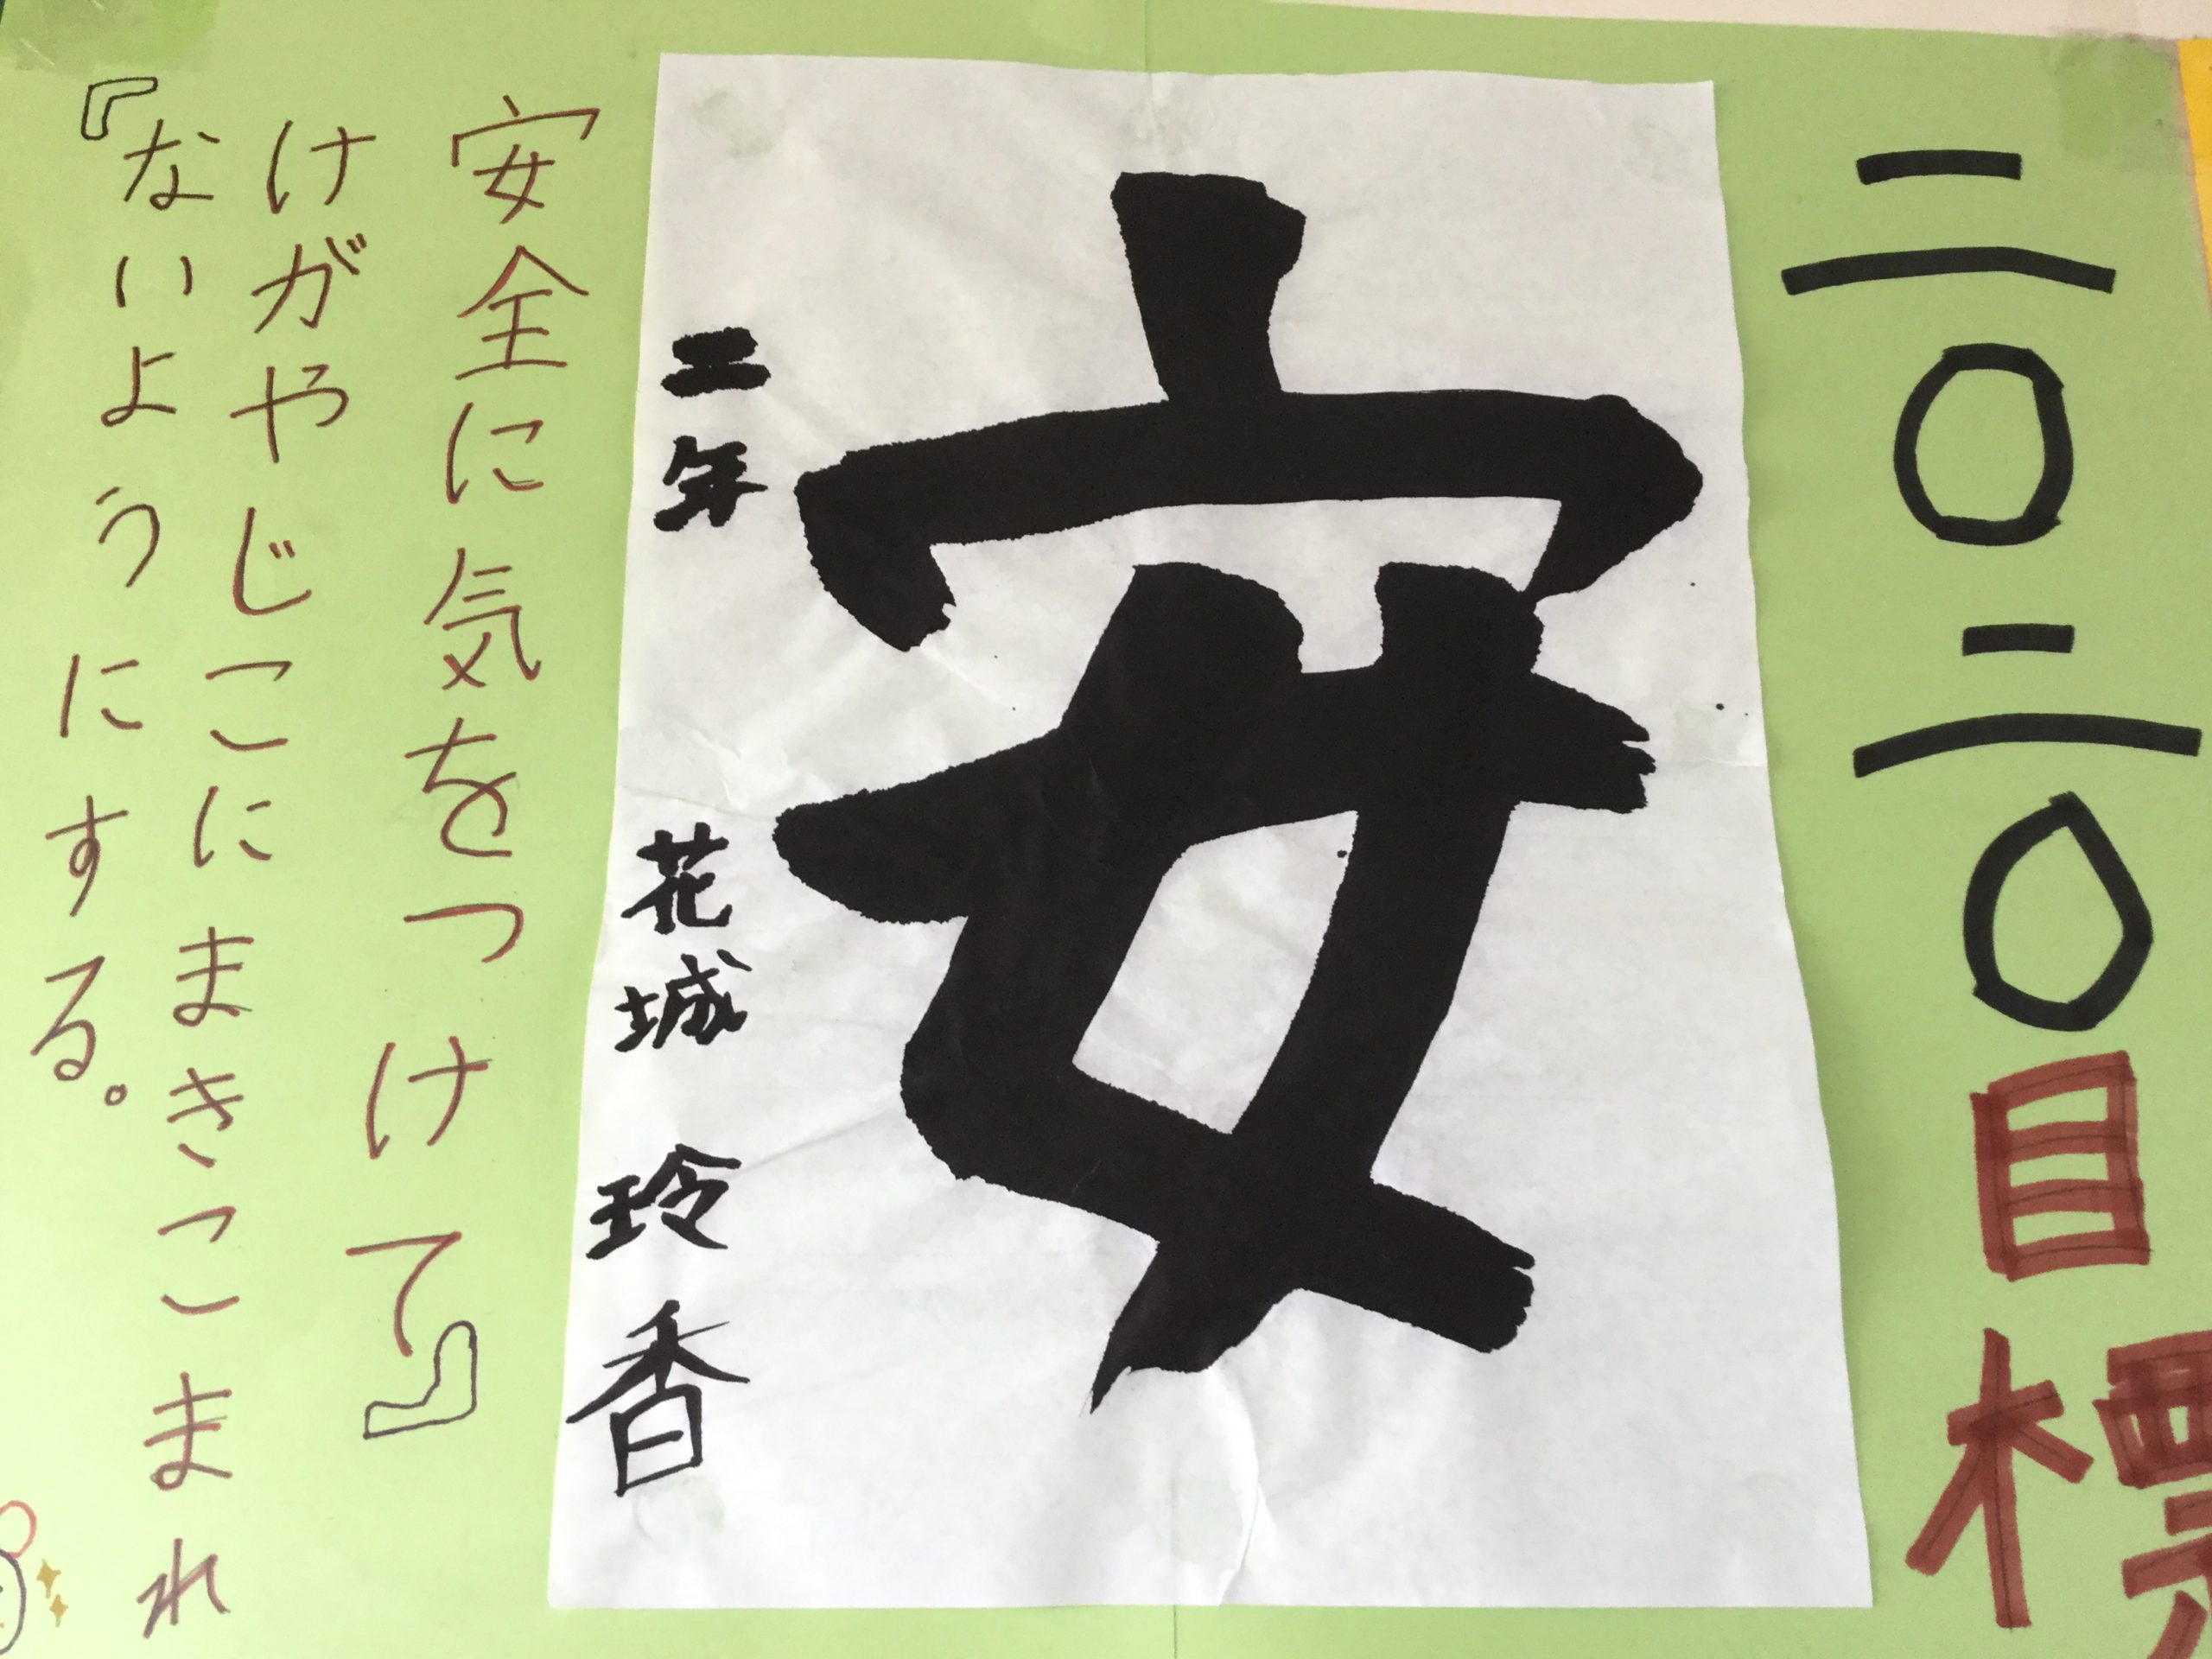 二〇二〇目標
安
三年 花城 玲香
安全に気をつけて』
けがやじこにまきこまれ
『ないようにする。